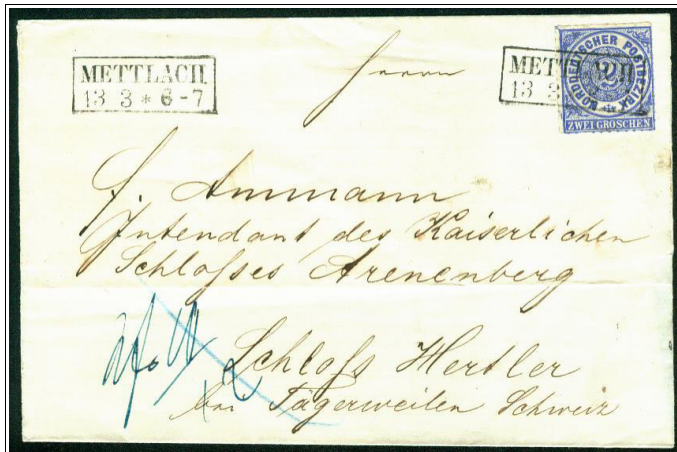 METTLACH
13 3 * 6-7
MET
13 3
NORDDEUTSCHER POSTBEZIRK
2
ZWEI GROSCHEN
Herrn
J. Ammann
Intendant des Kaiserlichen
Schlosses Arenenberg
Schloss Hertler
bei Tägerweilen Schweiz